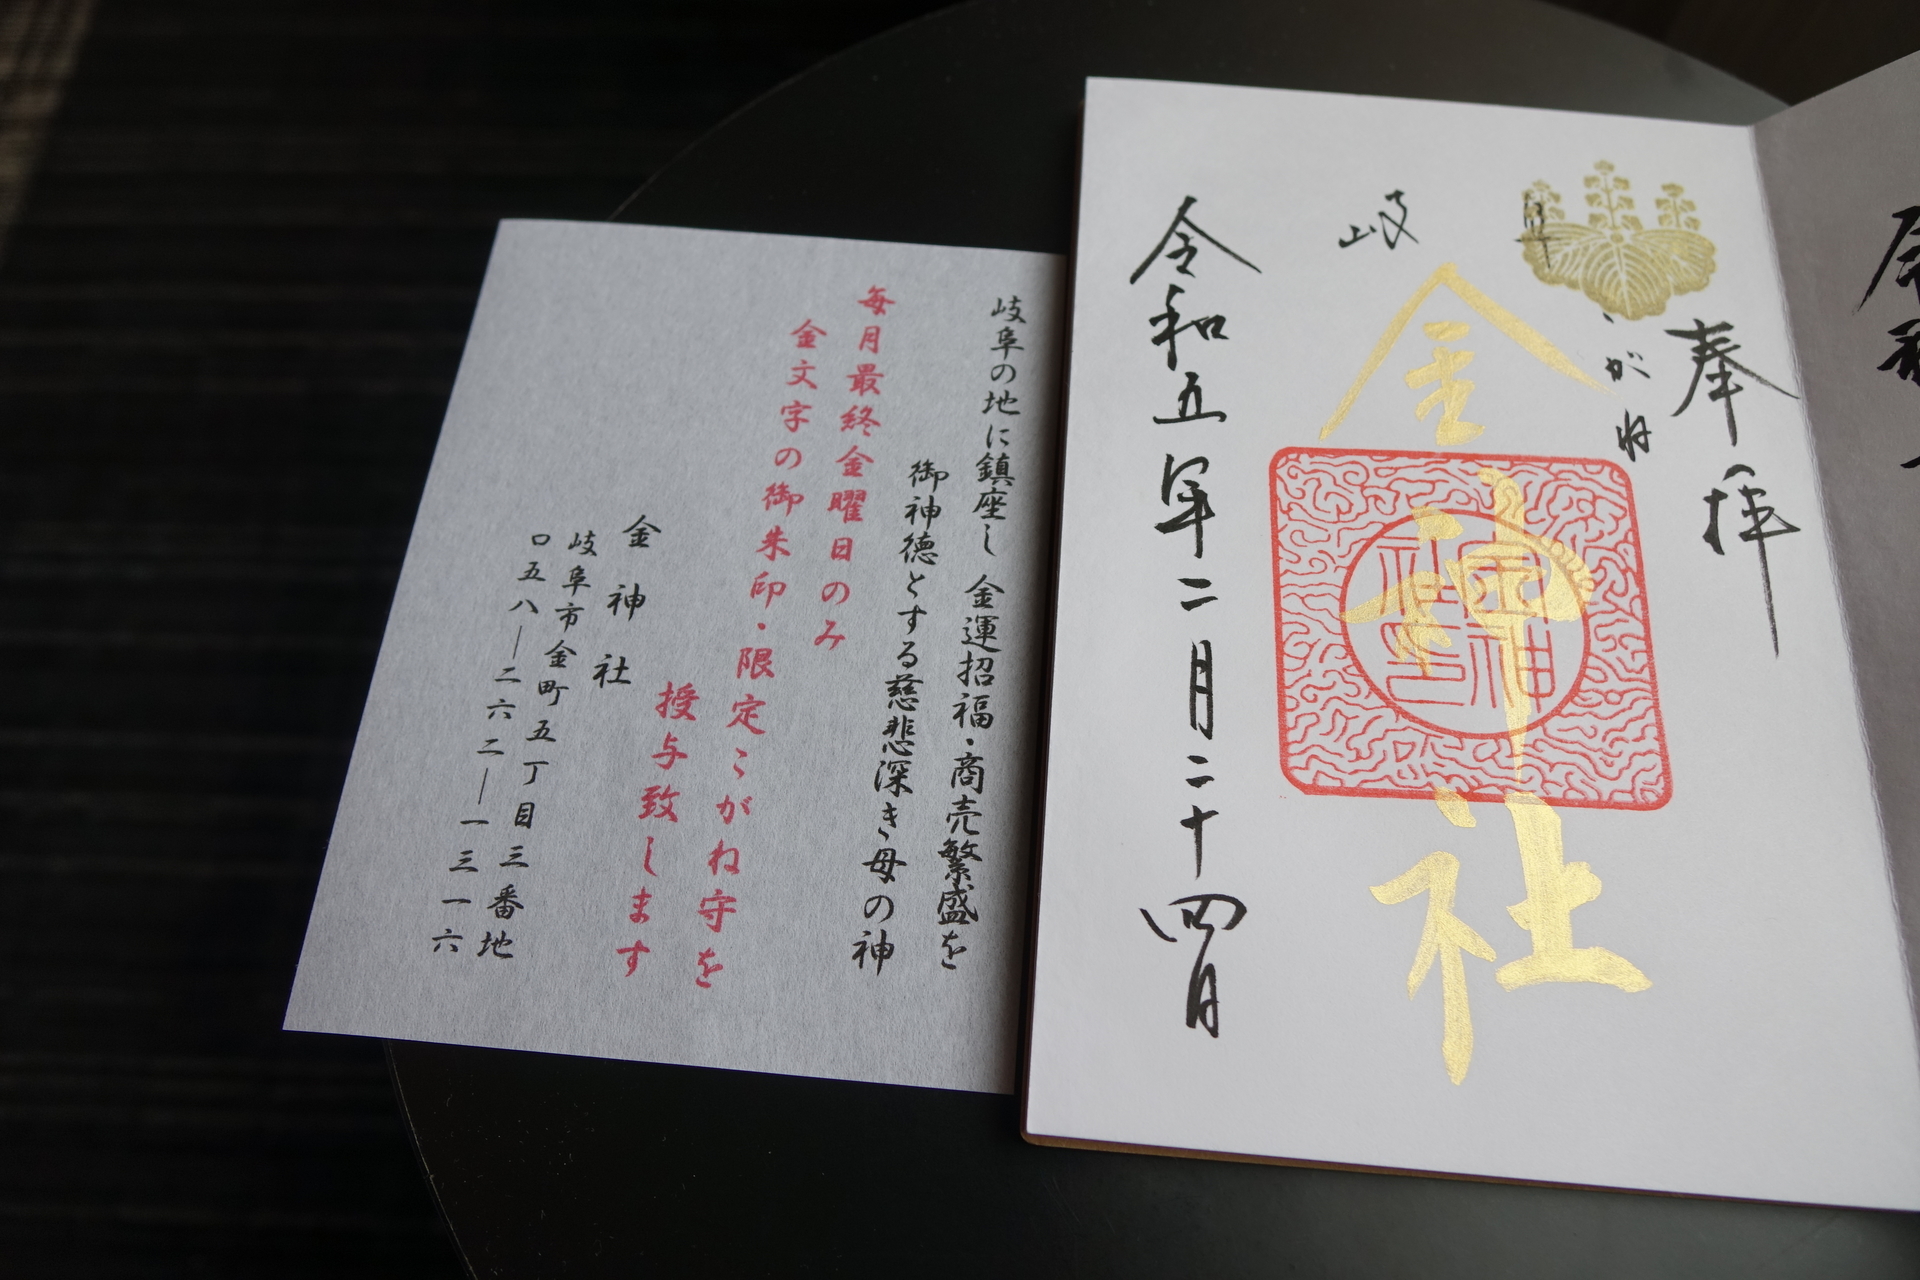 奉拝
岐阜
こがね
金神社
令和五年二月二十四日
岐阜の地に鎮座し 金運招福・商売繁盛を
御神徳とする慈悲深き母の神
毎月最終金曜日のみ
金文字の御朱印・限定こがね守を
授与致します
金神社
岐阜市金町五丁目三番地
〇五八―二六二―一三一六